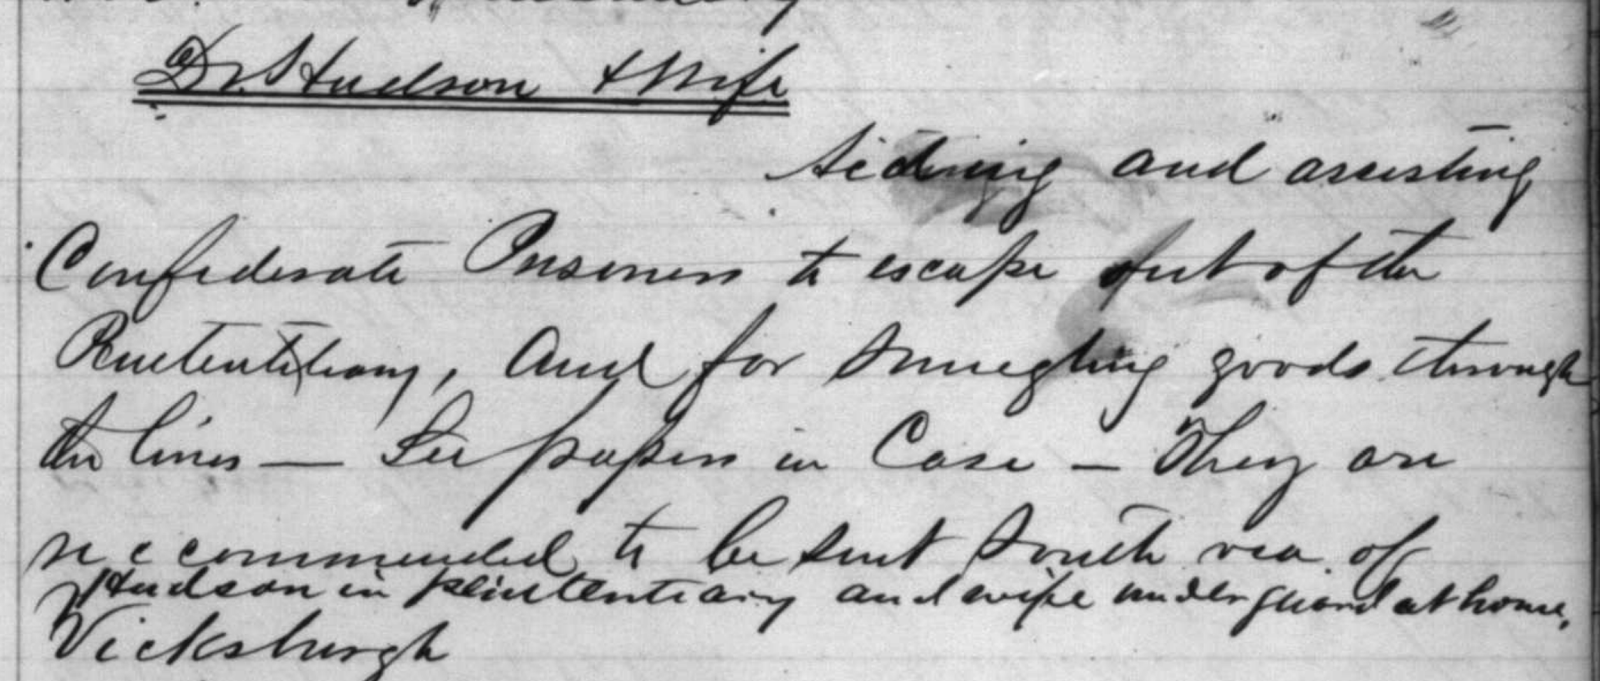 Dr. Hudson & Wife
Aidning and assisting
Confederate Prisoners to escape out of the
Penetentitiary, And for smugling goods through
the lines — See papers in Case — They are
reccommended to be sent South via of
Hudson in peintentiary and wife under guard at home.
Vicksburgh